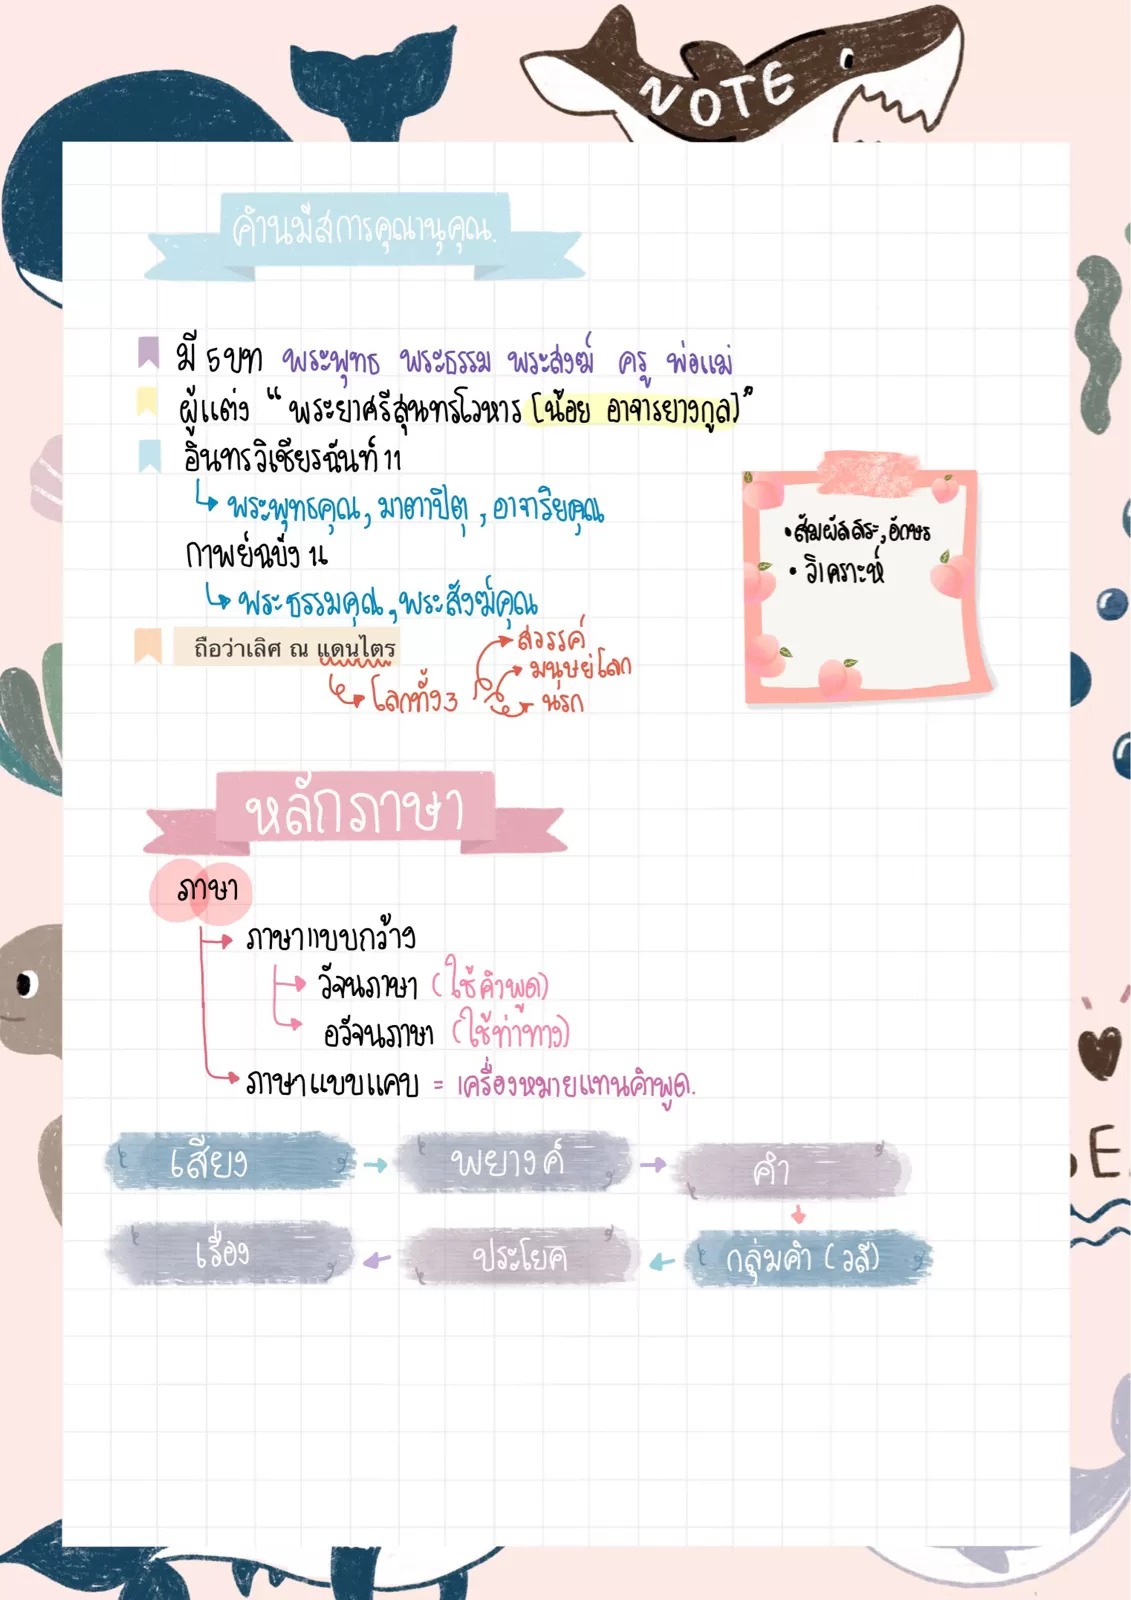 NOTE
คำนมัสการคุณานุคุณ.
มี 5 บท พระพุทธ พระธรรม พระสงฆ์ ครู พ่อแม่
ผู้แต่ง “พระยาศรีสุนทรโวหาร [น้อย อาจารยางกูล]”
อินทรวิเชียรฉันท์ 11
พระพุทธคุณ, มาตาปิตุ, อาจาริยคุณ
กาพย์ฉบัง 16
พระธรรมคุณ, พระสังฆ์คุณ
ถือว่าเลิศ ณ แดนไตร
โลกทั้ง 3
สวรรค์
มนุษย์โลก
นรก
• สัมผัสสระ, อักษร
• วิเคราะห์
หลักภาษา
ภาษา
ภาษาแบบกว้าง
วัจนภาษา (ใช้คำพูด)
อวัจนภาษา (ใช้ท่าทาง)
ภาษาแบบแคบ = เครื่องหมายแทนคำพูด.
เสียง
พยางค์
คำ
กลุ่มคำ (วลี)
ประโยค
เรื่อง